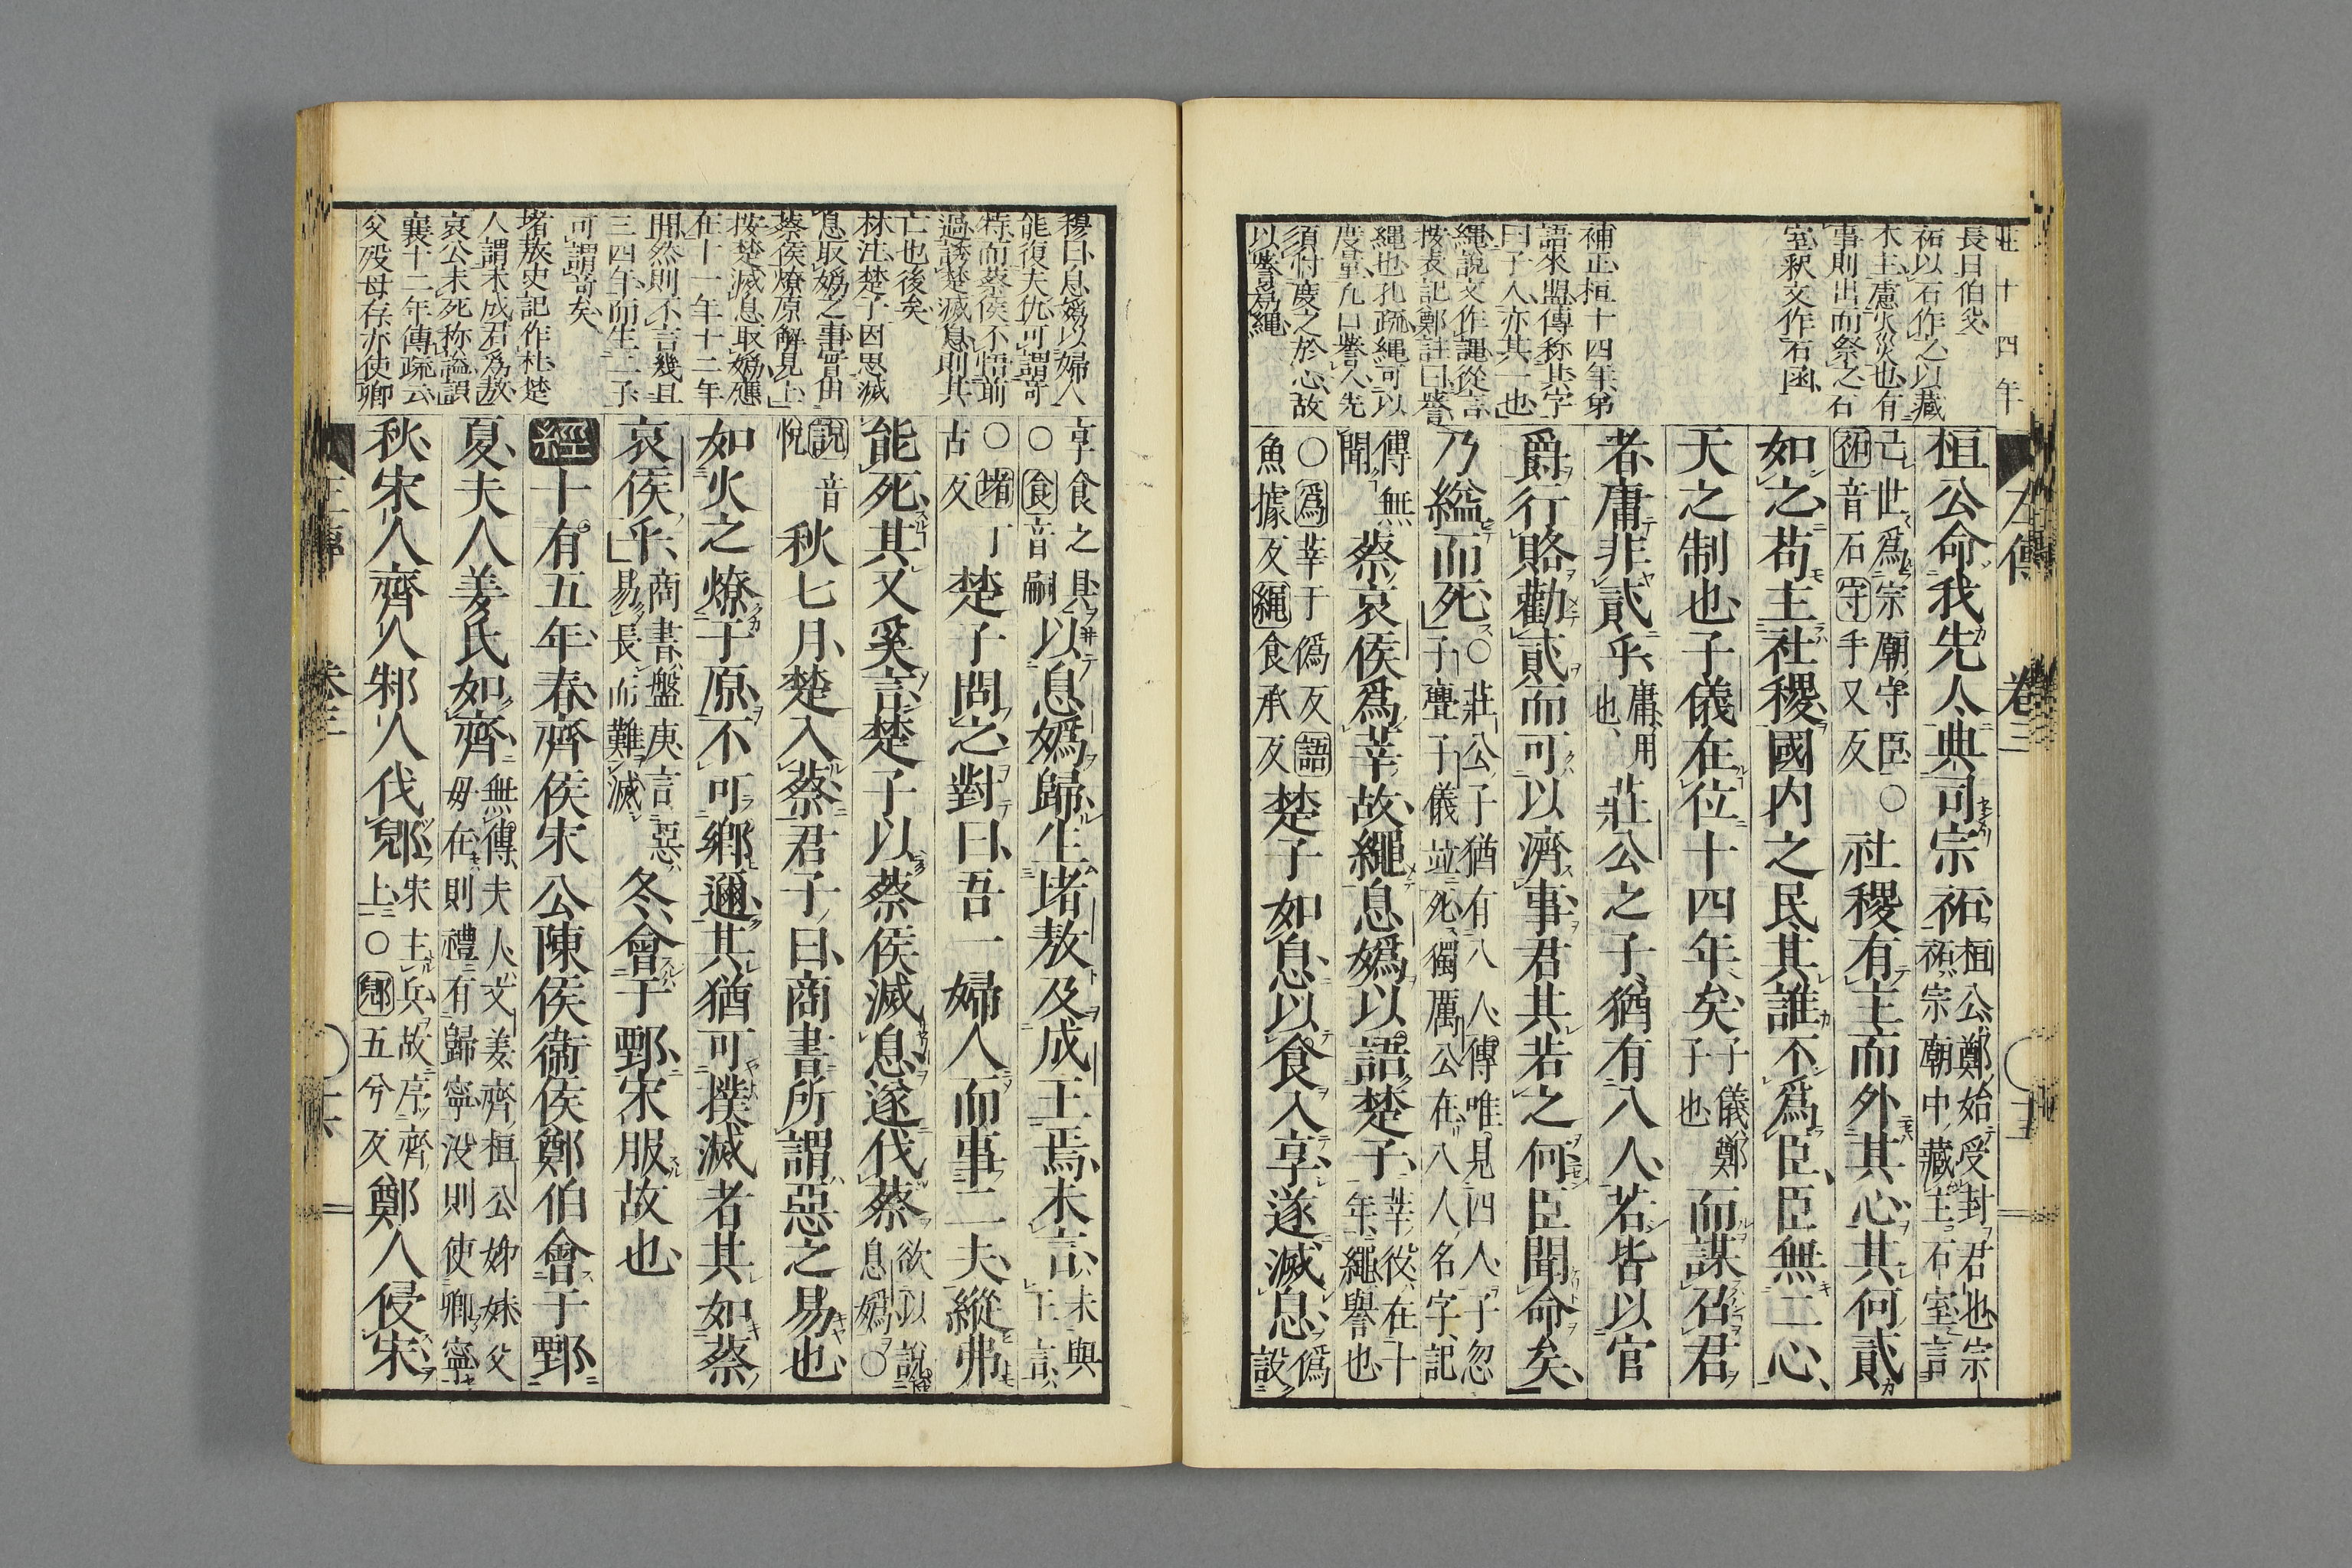 莊十四年
長曰伯父
祏以石作之以藏
木主慮火災也有
事則出而祭之石
室釈文作石函
補正桓十四年弟
語來盟傳称其字
曰子人亦其一也
繩說文作譝從言
按表記鄭註曰譽
繩也孔疏繩可以
度量凡口譽人先
須忖度之於心故
以譽爲繩
左傳 卷三
桓公命我先人典司宗祏桓公鄭始受封君也宗祏宗廟中藏主石室言
己世爲宗廟守臣〇祏音石守手又反社稷有主而外其心其何貳
如之苟主社稷國内之民其誰不爲臣臣無二心
天之制也子儀在位十四年矣子儀鄭子也而謀召君
者庸非貳乎庸用也莊公之子猶有八人若皆以官
爵行賂勸貳而可以濟事君其若之何臣聞命矣
乃縊而死〇莊公子猶有八人傳唯見四人子忽子亹子儀並死獨厲公在八人名字記
傳無聞蔡哀侯爲莘故繩息嬀以語楚子莘役在十年繩譽也
〇爲莘于僞反語魚據反繩食承反楚子如息以食入享遂滅息僞設
穆曰息嬀以婦人
能復夫仇可謂奇
特而蔡侯不悟前
過誘楚滅息則其
亡也後矣
林注楚子因思滅
息取嬀之事冒由
蔡侯燎原解見上
按楚滅息取嬀應
在十一年十二年
間然則不言幾且
三四年而生二子
可謂奇矣
堵敖史記作杜楚
人謂未成君爲敖
哀公未死称謚誤
襄十二年傳疏云
父殁母存亦使卿
享食之具〇食音嗣以息嬀歸生堵敖及成王焉未言未與王言
〇堵丁古反楚子問之對曰吾一婦人而事二夫縱弗
能死其又奚言楚子以蔡侯滅息遂伐蔡欲以說息嬀〇
說音悅秋七月楚入蔡君子曰商書所謂惡之易也
如火之燎于原不可鄉邇其猶可撲滅者其如蔡
哀侯乎商書盤庚言惡易長而難滅冬會于鄄宋服故也
經十有五年春齊侯宋公陳侯衞侯鄭伯會于鄄
夏夫人姜氏如齊無傳夫人文姜齊桓公姊妹父母在則禮有歸寧没則使卿寧
秋宋人齊人邾人伐郳宋主兵故序齊上〇郳五兮反鄭人侵宋
卷三